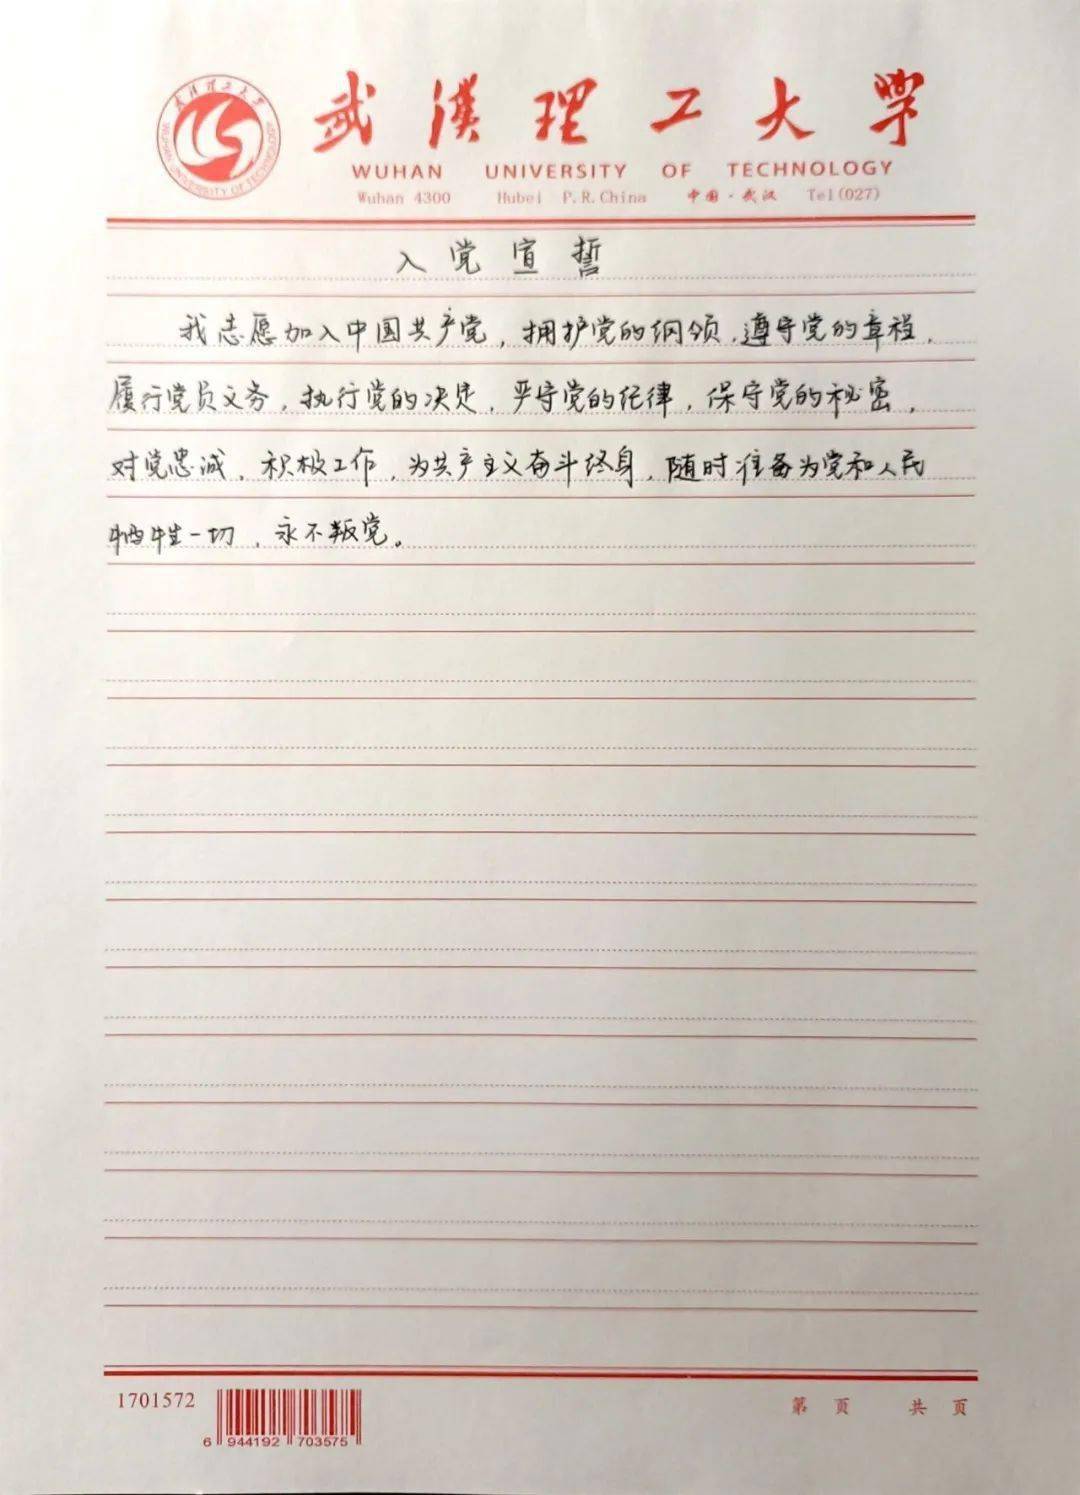 武漢理工大學
WUHAN UNIVERSITY OF TECHNOLOGY
Wuhan 4300 Hubei P.R.China 中国·武汉 Tel(027)
入党宣誓
我志愿加入中国共产党，拥护党的纲领，遵守党的章程，
履行党员义务，执行党的决定，严守党的纪律，保守党的秘密，
对党忠诚，积极工作，为共产主义奋斗终身，随时准备为党和人民
牺牲一切，永不叛党。
1701572
6 944192 703575
第 页 共 页